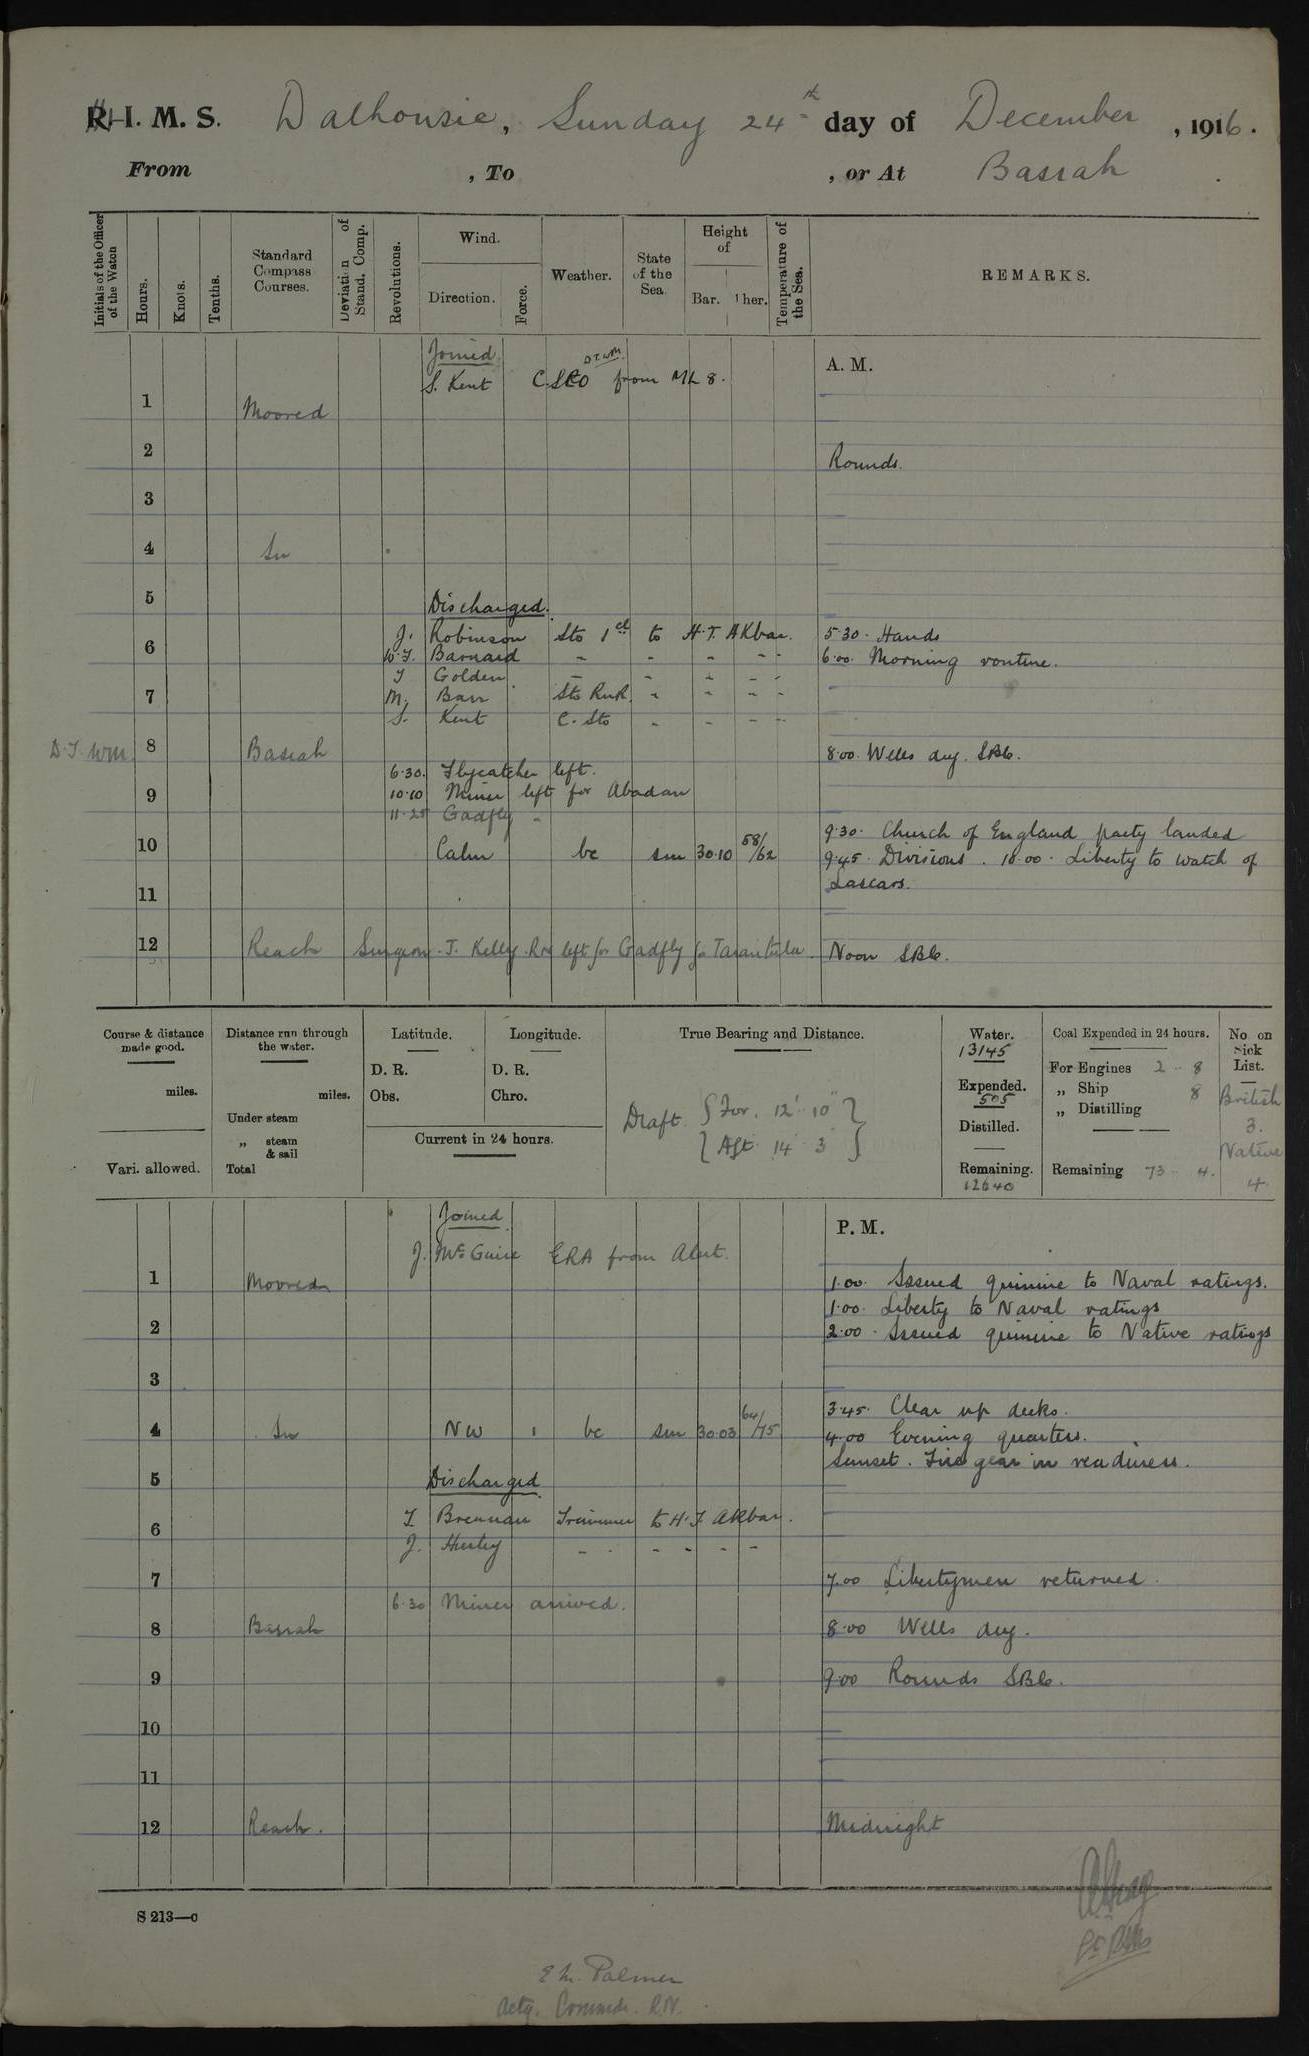 R. I. M. S. Dalhousie, Sunday 24th day of December, 1916.
From , To , or At Basrah.
Initials of the Officer of the Watch
Hours.
Knots.
Tenths.
Standard Compass Courses.
Deviation of Stand. Comp.
Revolutions.
Wind.
Direction.
Force.
Weather.
State of the Sea.
Height of
Bar. Ther.
Temperature of the Sea.
REMARKS.
Joined D.T. WM.
S. Kent C. Sto from ML 8.
A. M.
1 Moored
2 Rounds.
3
4 In
5 Discharged.
J. Robinson Sto 1cl to H.T. Akbar. 5.30. Hands
6
W.T. Barnard - - - - - 6.00. Morning routine.
T Golden - - - - -
7 M. Barr Sto RNR. - - - -
S. Kent C. Sto - - - -
D.T. WM. 8 Basrah 8.00. Wells dry. SBC.
6.30. Flycatcher left.
9 10.10 Miner left for Abadan
11.25 Gadfly -
9.30. Church of England party landed
10 Calm bc sm 30.10 58/62 9.45. Divisions. 10.00. Liberty to watch of
Lascars.
11
12 Reach Surgeon T. Kelly RN left for Gadfly for Tarantula. Noon SBC.
Course & distance made good.
miles.
Vari. allowed.
Distance run through the water.
miles.
Under steam
„ steam & sail
Total
Latitude.
D. R.
Obs.
Longitude.
D. R.
Chro.
Current in 24 hours.
True Bearing and Distance.
Draft { For. 12' 10" }
{ Aft 14 3 }
Water.
13145
Expended.
505
Distilled.
Remaining.
12640
Coal Expended in 24 hours.
For Engines 2 - 8
„ Ship 8
„ Distilling
Remaining 73 - 4.
No on Sick List.
British
3.
Native
4
Joined
P. M.
J. McGuire ERA from Alert.
1 Moored 1.00. Issued quinine to Naval ratings.
1.00. Liberty to Naval ratings
2 2.00. Issued quinine to Native ratings
3
3.45. Clear up decks.
4 In NW 1 bc sm 30.03 64/75 4.00 Evening quarters.
Sunset. Fire gear in readiness.
5 Discharged
T Brennan Trimmer to H.T. Akbar.
6
J. Hurley - - - - - -
7 7.00 Libertymen returned.
6.30 Miner arrived.
8 Basrah 8.00 Wells dry.
9 9.00 Rounds SBC.
10
11
12 Reach. Midnight
S 213—c
E M. Palmer
Actg. Commdr. R.N.